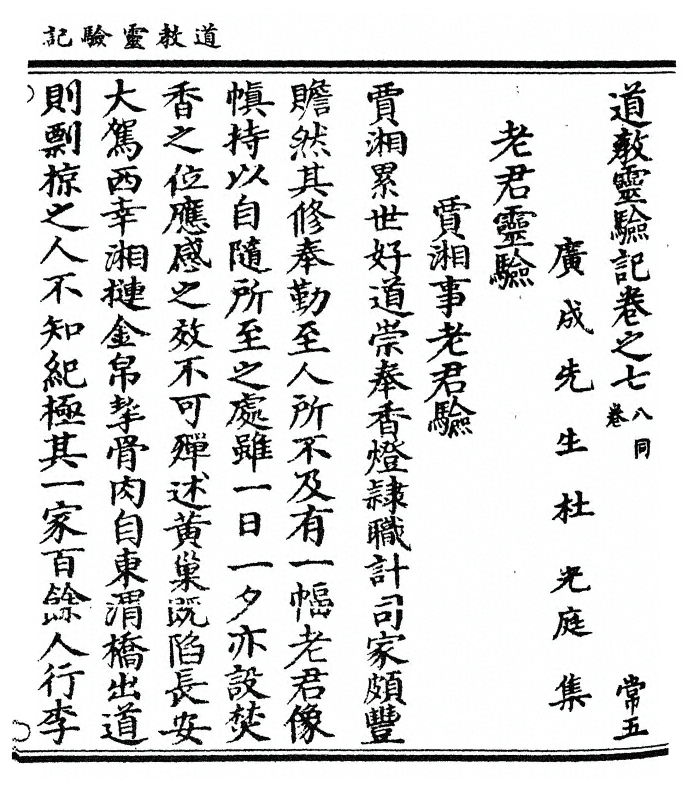 道教靈驗記
道教靈驗記卷之七 八同卷 常五
廣成先生杜光庭集
老君靈驗
賈湘事老君驗
賈湘累世好道崇奉香燈隷職計司家頗豐
贍然其修奉勤至人所不及有一幅老君像
幀持以自隨所至之處雖一日一夕亦設焚
香之位應感之效不可殫述黃巢既陷長安
大駕西幸湘摙金帛挈骨肉自東渭橋出道
則剽掠之人不知紀極其一家百餘人行李